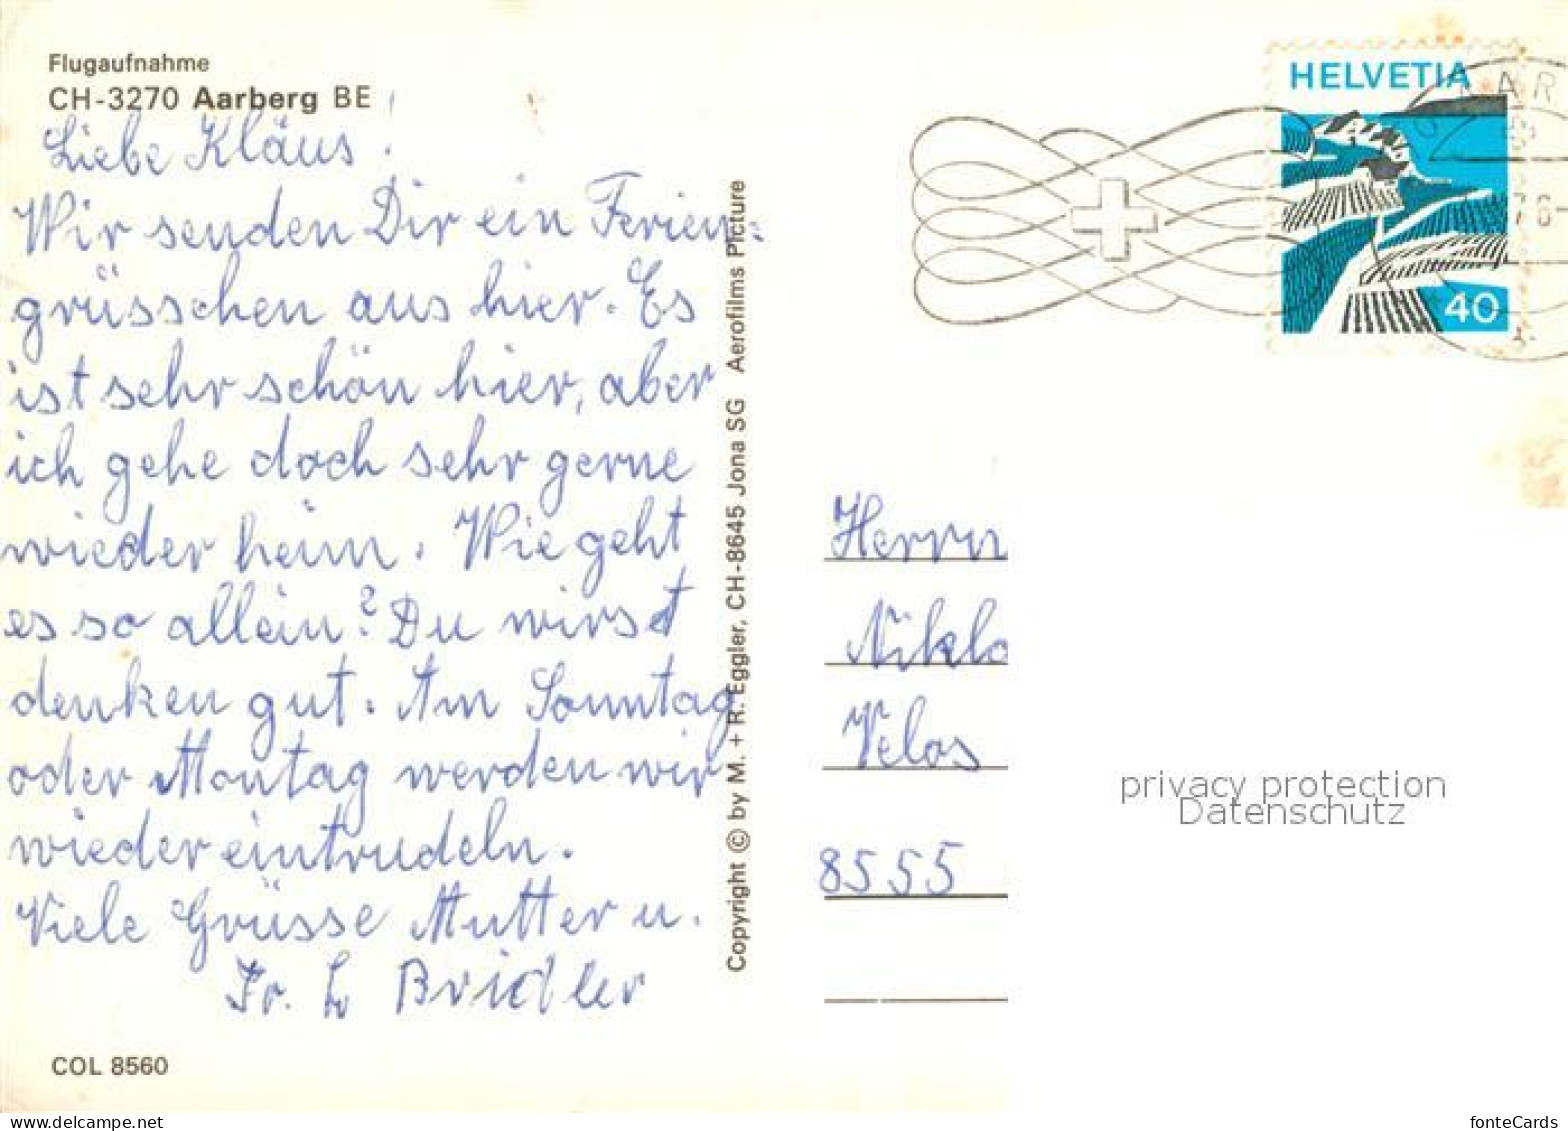 Flugaufnahme
CH-3270 Aarberg BE
Liebe Kläus!
Wir senden Dir ein Ferien-
grüsschen aus hier. Es
ist sehr schön hier, aber
ich gehe doch sehr gerne
wieder heim. Wie geht
es so allein? Du wirst
denken gut. Am Sonntag
oder Montag werden wir
wieder eintrudeln.
Viele Grüsse Mutter u.
Fr. L Bridler
COL 8560
Copyright © by M. + R. Eggler, CH-8645 Jona SG Aerofilms Picture
HELVETIA
40
AAR
Herrn
Niklo
Velos
8555
privacy protection
Datenschutz
www.delcampe.net
fonteCards